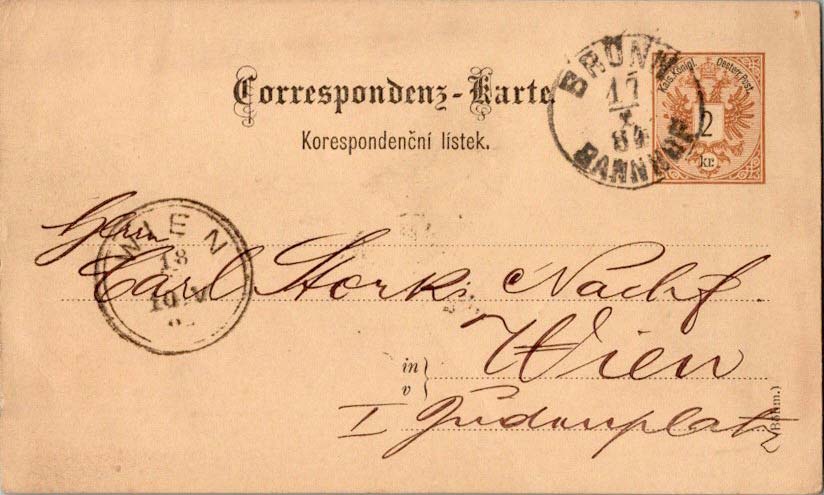 Correspondenz-Karte.
Korespondenční lístek.
BRÜNN
17
BAHNHOF
Kais. Königl. Oesterr. Post.
2
kr.
WIEN
18
Herrn
Carl Stork's Nachf.
in
v
Wien
I Judenplatz
(Böhm.)